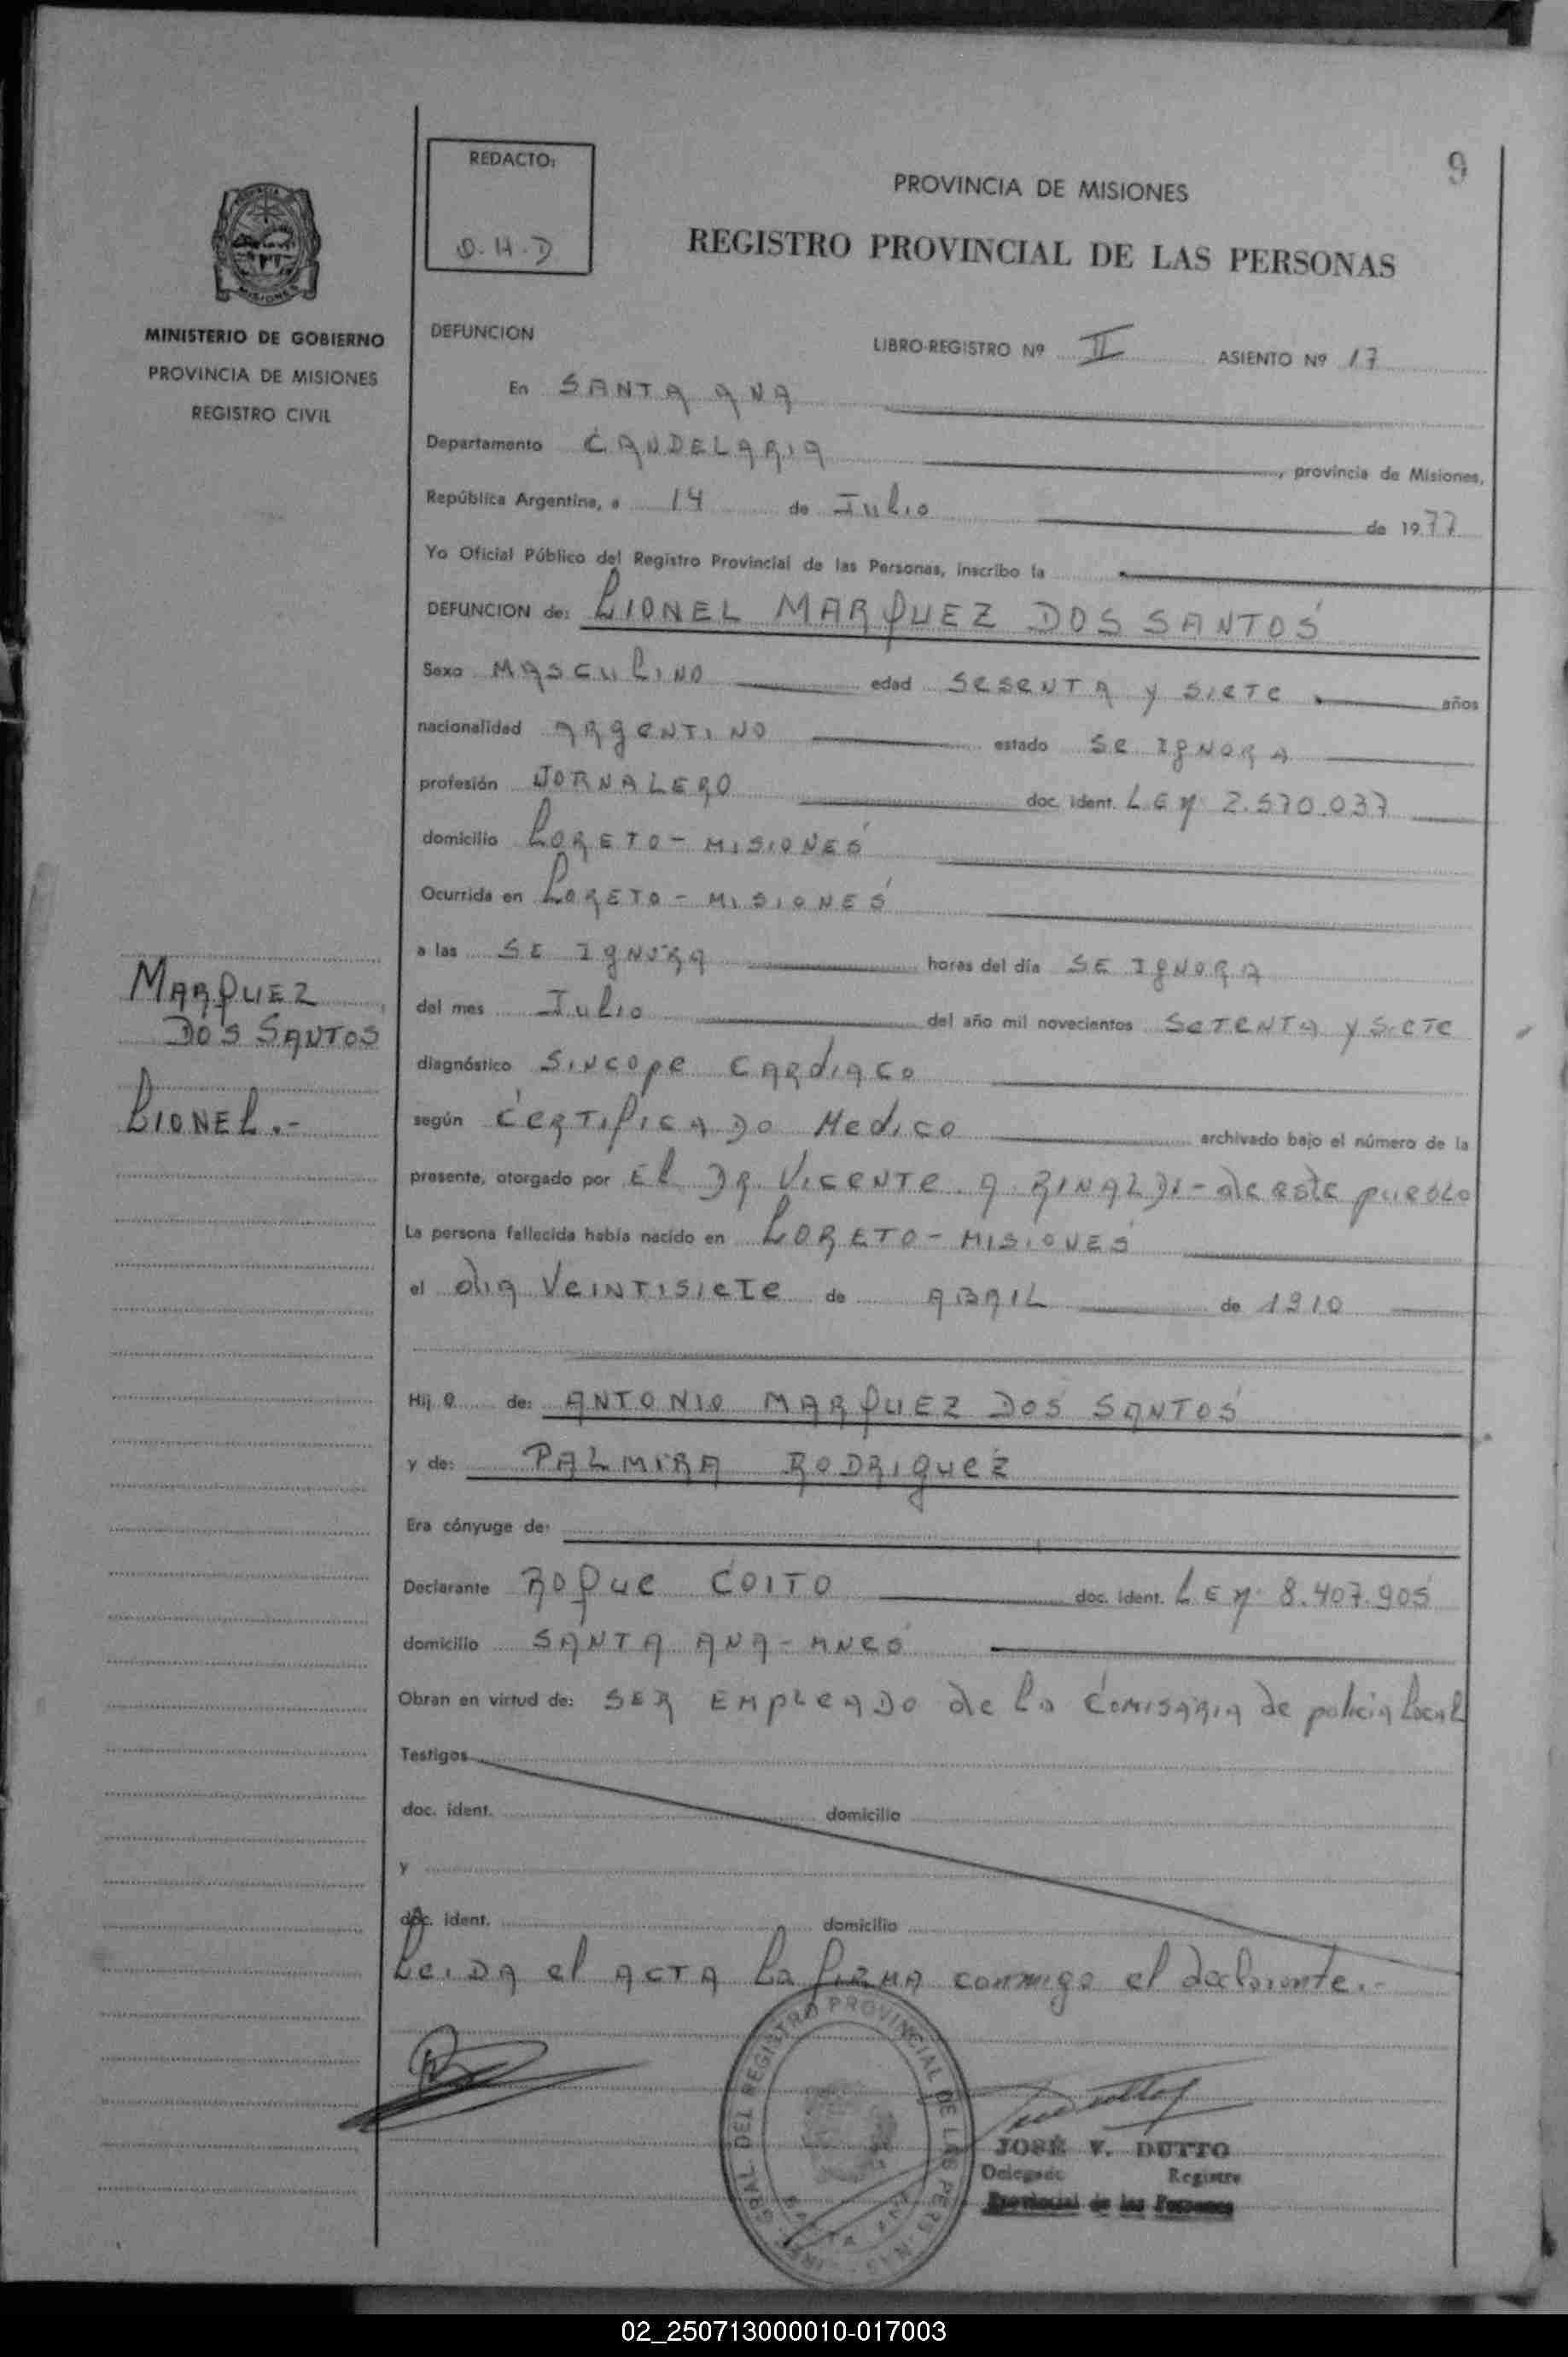 9
REDACTO:
O.H.D
PROVINCIA DE MISIONES
REGISTRO PROVINCIAL DE LAS PERSONAS
MISIONES
MINISTERIO DE GOBIERNO
PROVINCIA DE MISIONES
REGISTRO CIVIL
DEFUNCION
LIBRO-REGISTRO Nº II ASIENTO Nº 17
En SANTA ANA
Departamento CANDELARIA, provincia de Misiones,
República Argentina, a 14 de Julio de 1977
Yo Oficial Público del Registro Provincial de las Personas, inscribo la
DEFUNCION de: LIONEL MARQUEZ DOS SANTOS
Sexo MASCULINO edad SESENTA y SIETE años
nacionalidad ARGENTINO estado SE IGNORA
profesión JORNALERO doc. ident. L E Nº 2.570.037
domicilio LORETO - MISIONES
Ocurrida en LORETO - MISIONES
a las SE IGNORA horas del día SE IGNORA
del mes Julio del año mil novecientos SETENTA y SIETE
diagnóstico SINCOPE CARDIACO
según CERTIFICADO Medico archivado bajo el número de la
presente, otorgado por El DR. VICENTE A. RINALDI - de este pueblo
La persona fallecida había nacido en LORETO - MISIONES
el dia VEINTISIETE de ABRIL de 1910
Hij o de: ANTONIO MARQUEZ DOS SANTOS
y de: PALMIRA RODRIGUEZ
Era cónyuge de:
Declarante ROQUE COITO doc. ident. L E Nº 8.407.905
domicilio SANTA ANA - MNES
Obran en virtud de: SER EMPLEADO de la COMISARIA de policia local
Testigos
doc. ident. domicilio
y
doc. ident. domicilio
Leida el ACTA la FIRMA conmigo el declarante.-
MARQUEZ
DOS SANTOS
LIONEL.-
GRAL. DEL REGISTRO PROVINCIAL DE LAS PERS
JOSÉ V. DUTTO
Delegado Registro
Provincial de las Personas
02_250713000010-017003